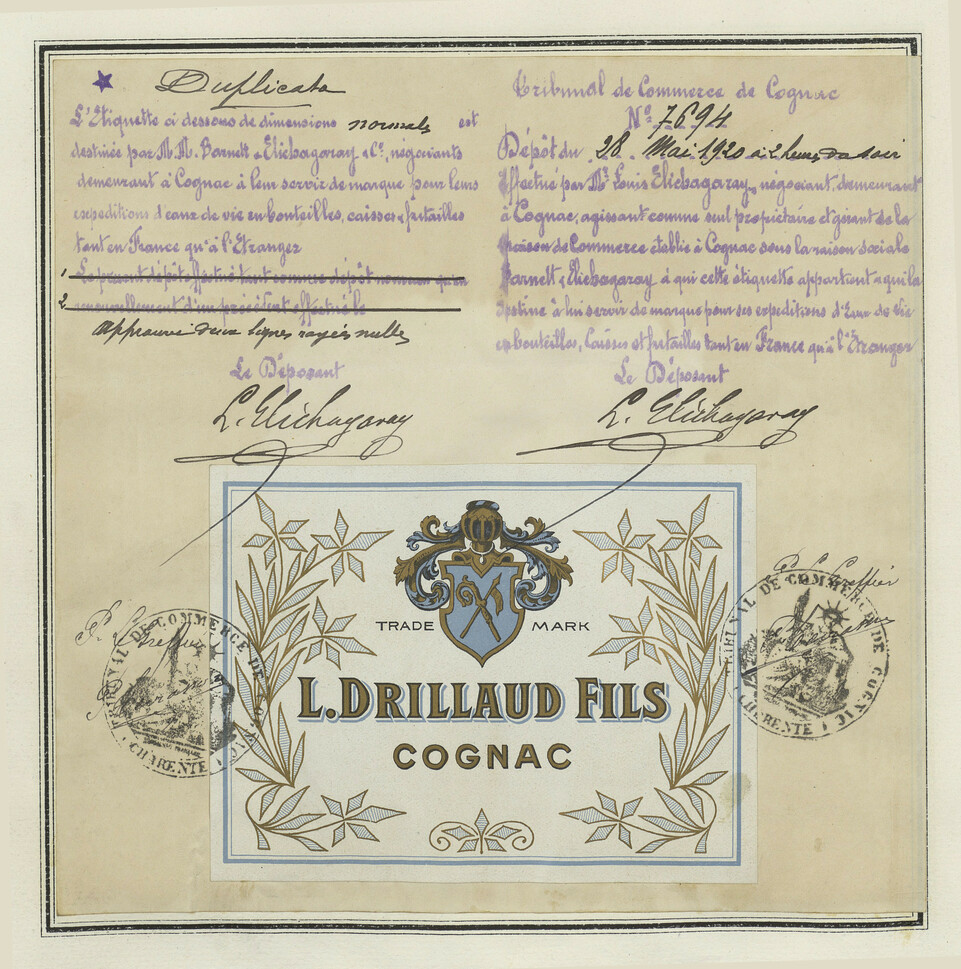 Duplicata
L'Etiquette ci dessous de dimensions normales est
destinée par M.M. Barnett & Elichagaray & Cie, négociants
demeurant à Cognac à leur servir de marque pour leurs
expéditions d'eaux de vie en bouteilles, caisses & futailles
tant en France qu'à l'Etranger
1 Le présent dépôt effectué tant comme dépôt nouveau qu'en
2 renouvellement d'un précédent effectué le
Approuvé deux lignes rayées nulles
Le Déposant
L. Elichagaray
Tribunal de Commerce de Cognac
No 7694
Dépôt du 28 Mai 1920 à 2 heures du soir
Effectué par Mr Louis Elichagaray, négociant, demeurant
à Cognac, agissant comme seul propriétaire et gérant de la
Maison de Commerce établie à Cognac sous la raison sociale
Barnett & Elichagaray à qui cette étiquette appartient & qui la
destine à lui servir de marque pour ses expéditions d'Eaux de Vie
en bouteilles, Caisses et futailles tant en France qu'à l'Etranger
Le Déposant
L. Elichagaray
TRADE MARK
L. DRILLAUD FILS
COGNAC
P. Le Greffier
TRIBUNAL DE COMMERCE DE COGNAC
CHARENTE
P. Le Greffier
TRIBUNAL DE COMMERCE DE COGNAC
CHARENTE